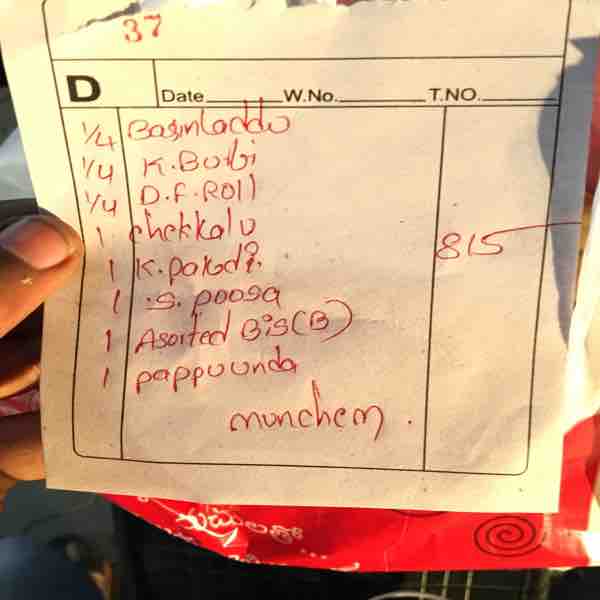 37
D Date W.No. T.NO.
1/4 Basmladdu
1/4 K.Burbi
1/4 D.F.Roll
1 chekkalu
1 K.pakodi.
1 .s. poosa
1 Asorted Bis(B)
1 pappuunda
815
munchem .